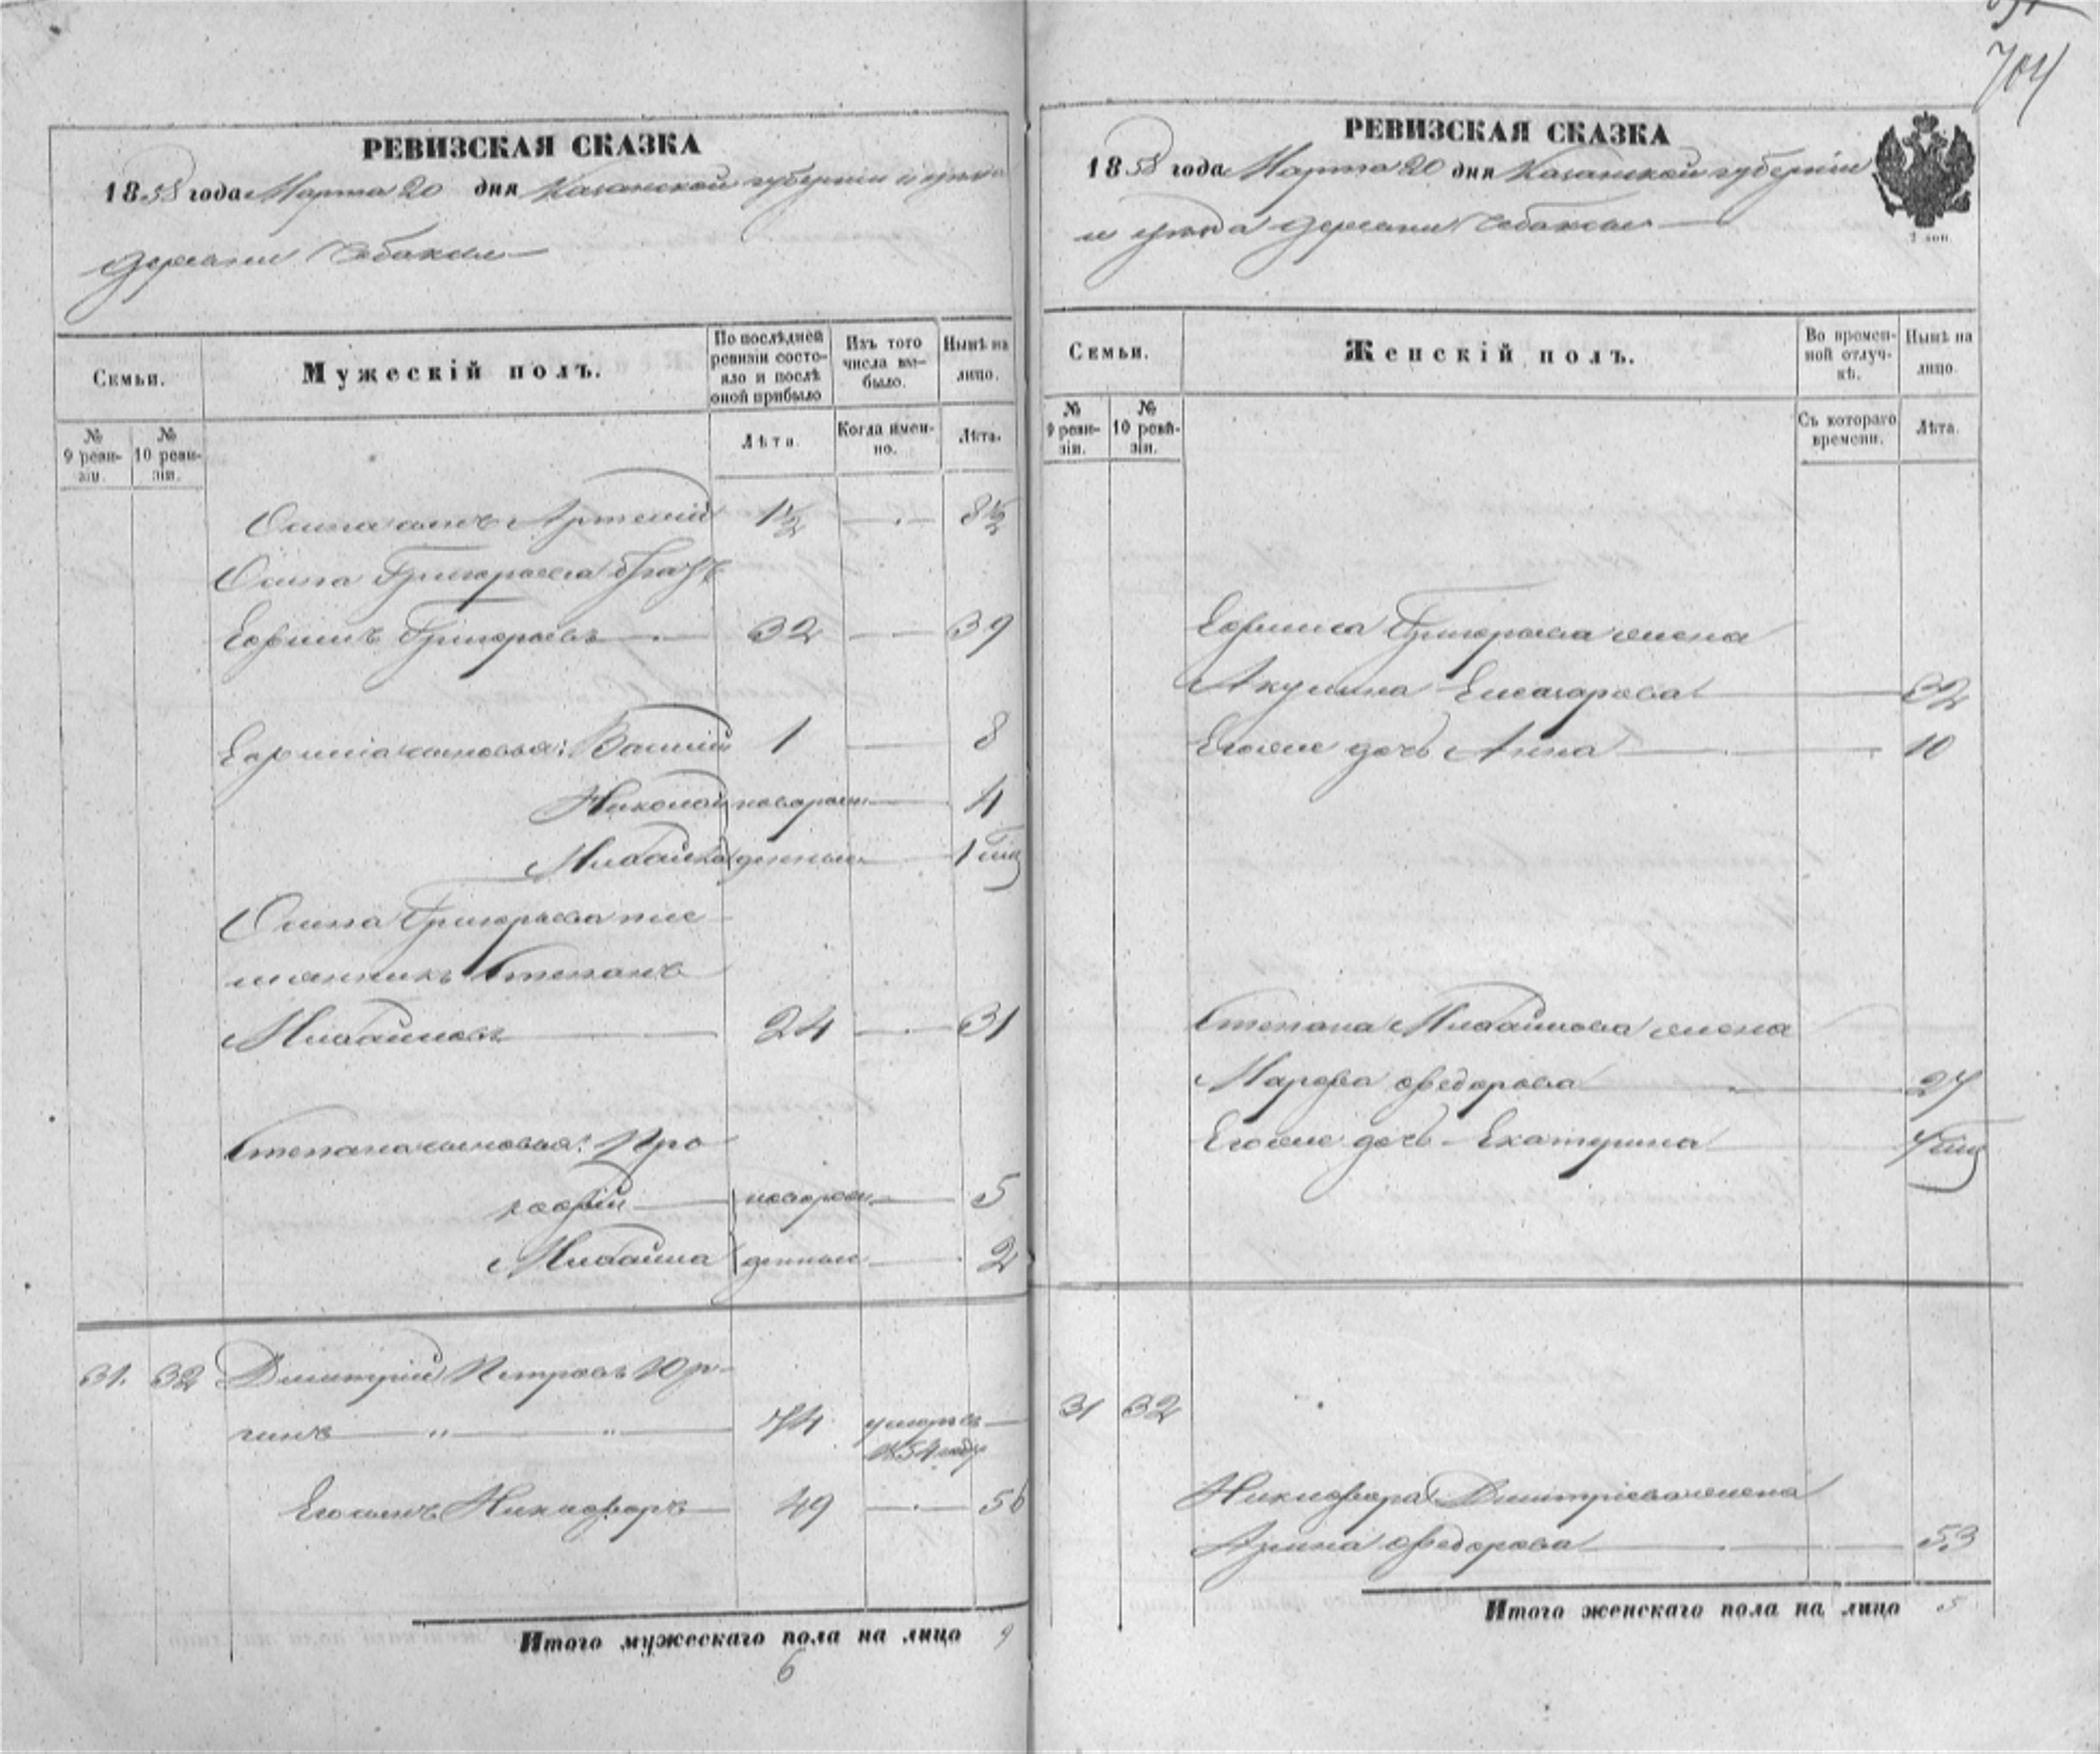 704
РЕВИЗСКАЯ СКАЗКА
1858 года Марта 20 дня Казанской губернии и уѣзда
деревни Чебаксы
Семьи.
Мужескій полъ.
По послѣдней ревизіи состояло и послѣ оной прибыло
Изъ того числа выбыло.
Нынѣ на лицо.
№ 9 ревизіи.
№ 10 ревизіи.
Лѣта.
Когда именно.
Лѣта.
Осипа сынъ Артемій 1½ — 8½
Осипа Григорьева братъ
Ефимъ Григорьевъ — 32 — 39
Ефима сыновья: Василій 1 — 8
Николай новорож — 4
Михайла денные — 1 мѣ
Осипа Григорьева пле-
мянникъ Степанъ
Михайловъ — 24 — 31
Степана сыновья: Про
кофій — новорож — 5
Михайла денные — 2
31. 32 Дмитрій Петровъ Юр-
гинъ — " — " — 74 умеръ въ
1854 году
Его сынъ Никифоръ — 49 — 56
Итого мужескаго пола на лицо 9
6
РЕВИЗСКАЯ СКАЗКА
1858 года Марта 20 дня Казанской губерніи
и уѣзда деревни Чебаксы —
2 коп.
Семьи.
Женскій полъ.
Во временной отлучкѣ.
Нынѣ на лицо.
№ 9 ревизіи.
№ 10 ревизіи.
Съ котораго времени.
Лѣта.
Ефима Григорьева жена
Акулина Елеазарова — 32
Его же дочь Анна — 10
Степана Михайлова жена
Марфа Федорова — 27
Его же дочь Екатерина — 7 мѣ
31 32
Никифора Дмитріева жена
Арина Федорова — 53
Итого женскаго пола на лицо 5